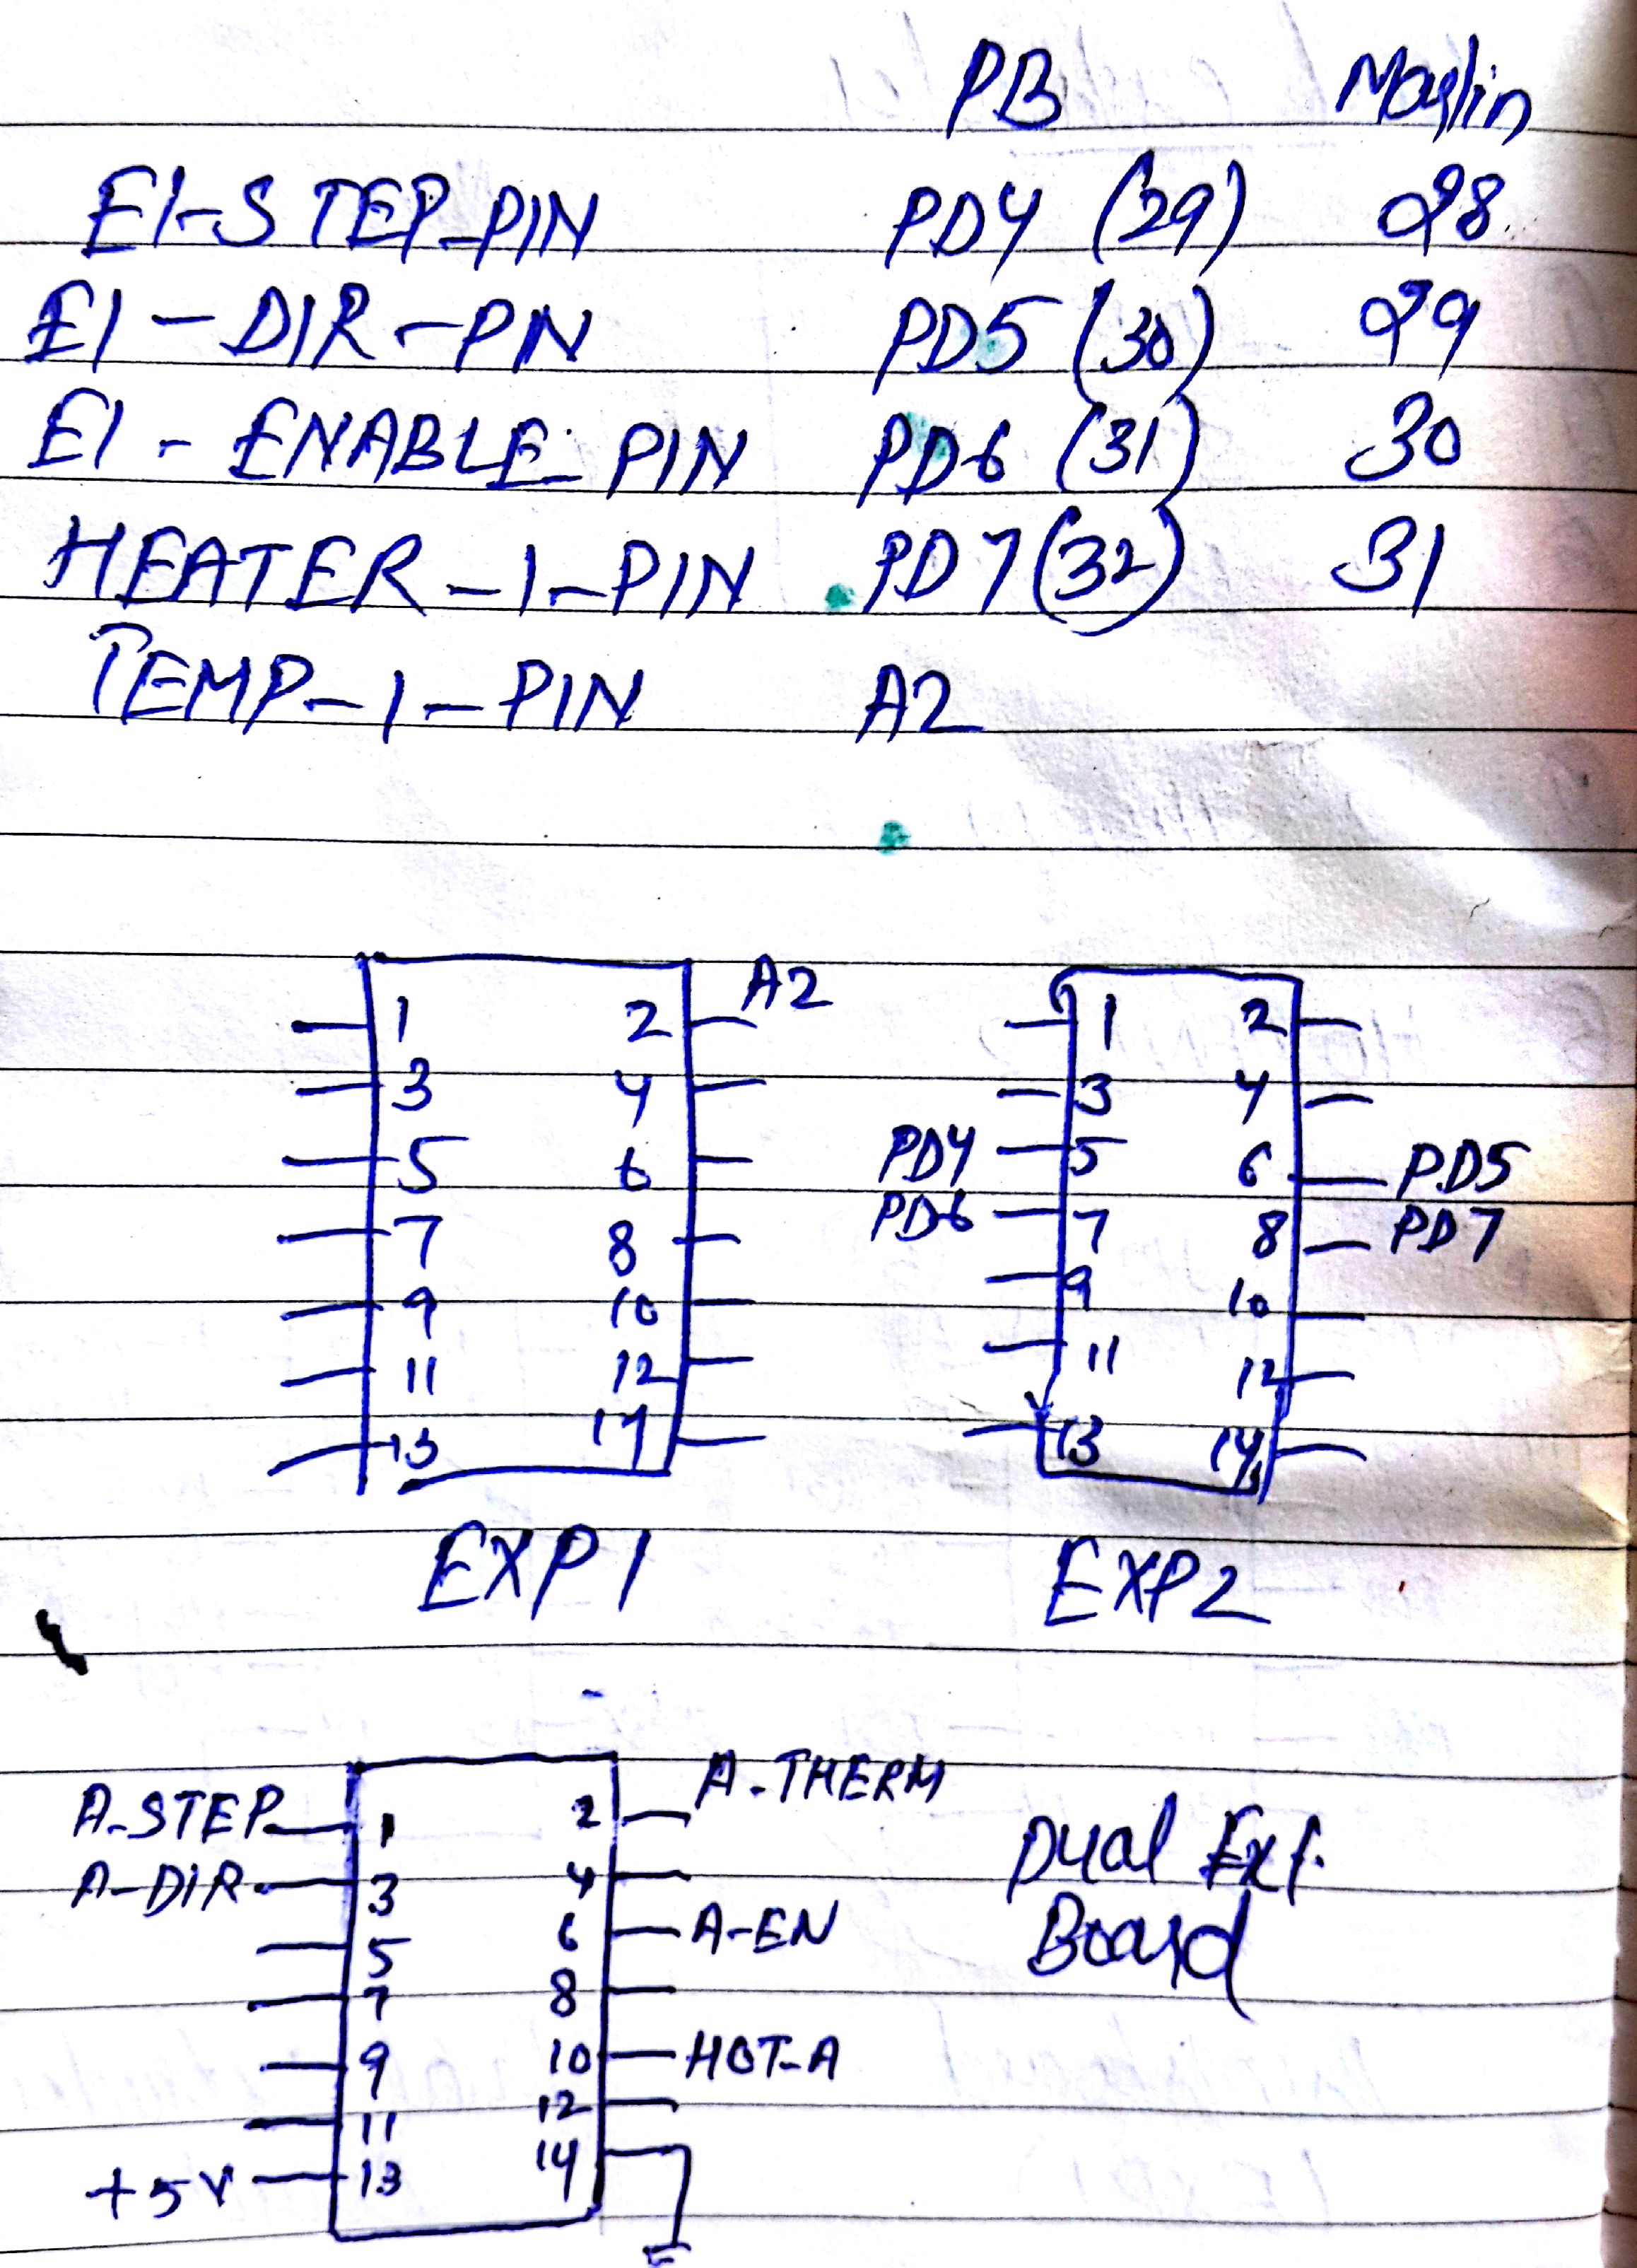 PB Marlin
E1-STEP-PIN PD4 (29) 28
E1-DIR-PIN PD5 (30) 29
E1-ENABLE-PIN PD6 (31) 30
HEATER-1-PIN PD7 (32) 31
TEMP-1-PIN A2
1 2 A2
3 4
5 6
7 8
9 10
11 12
13 14
EXP1
1 2
3 4
PD4 5 6 PD5
PD6 7 8 PD7
9 10
11 12
13 14
EXP2
A-STEP 1 2 A-THERM
A-DIR 3 4
5 6 A-EN
7 8
9 10 HOT-A
11 12
+5V 13 14
Dual Ext.
Board